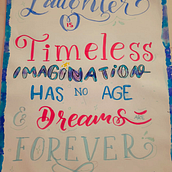 Laughter
is
Timeless
IMAGINATION
HAS NO AGE
& Dreams are
FOREVER